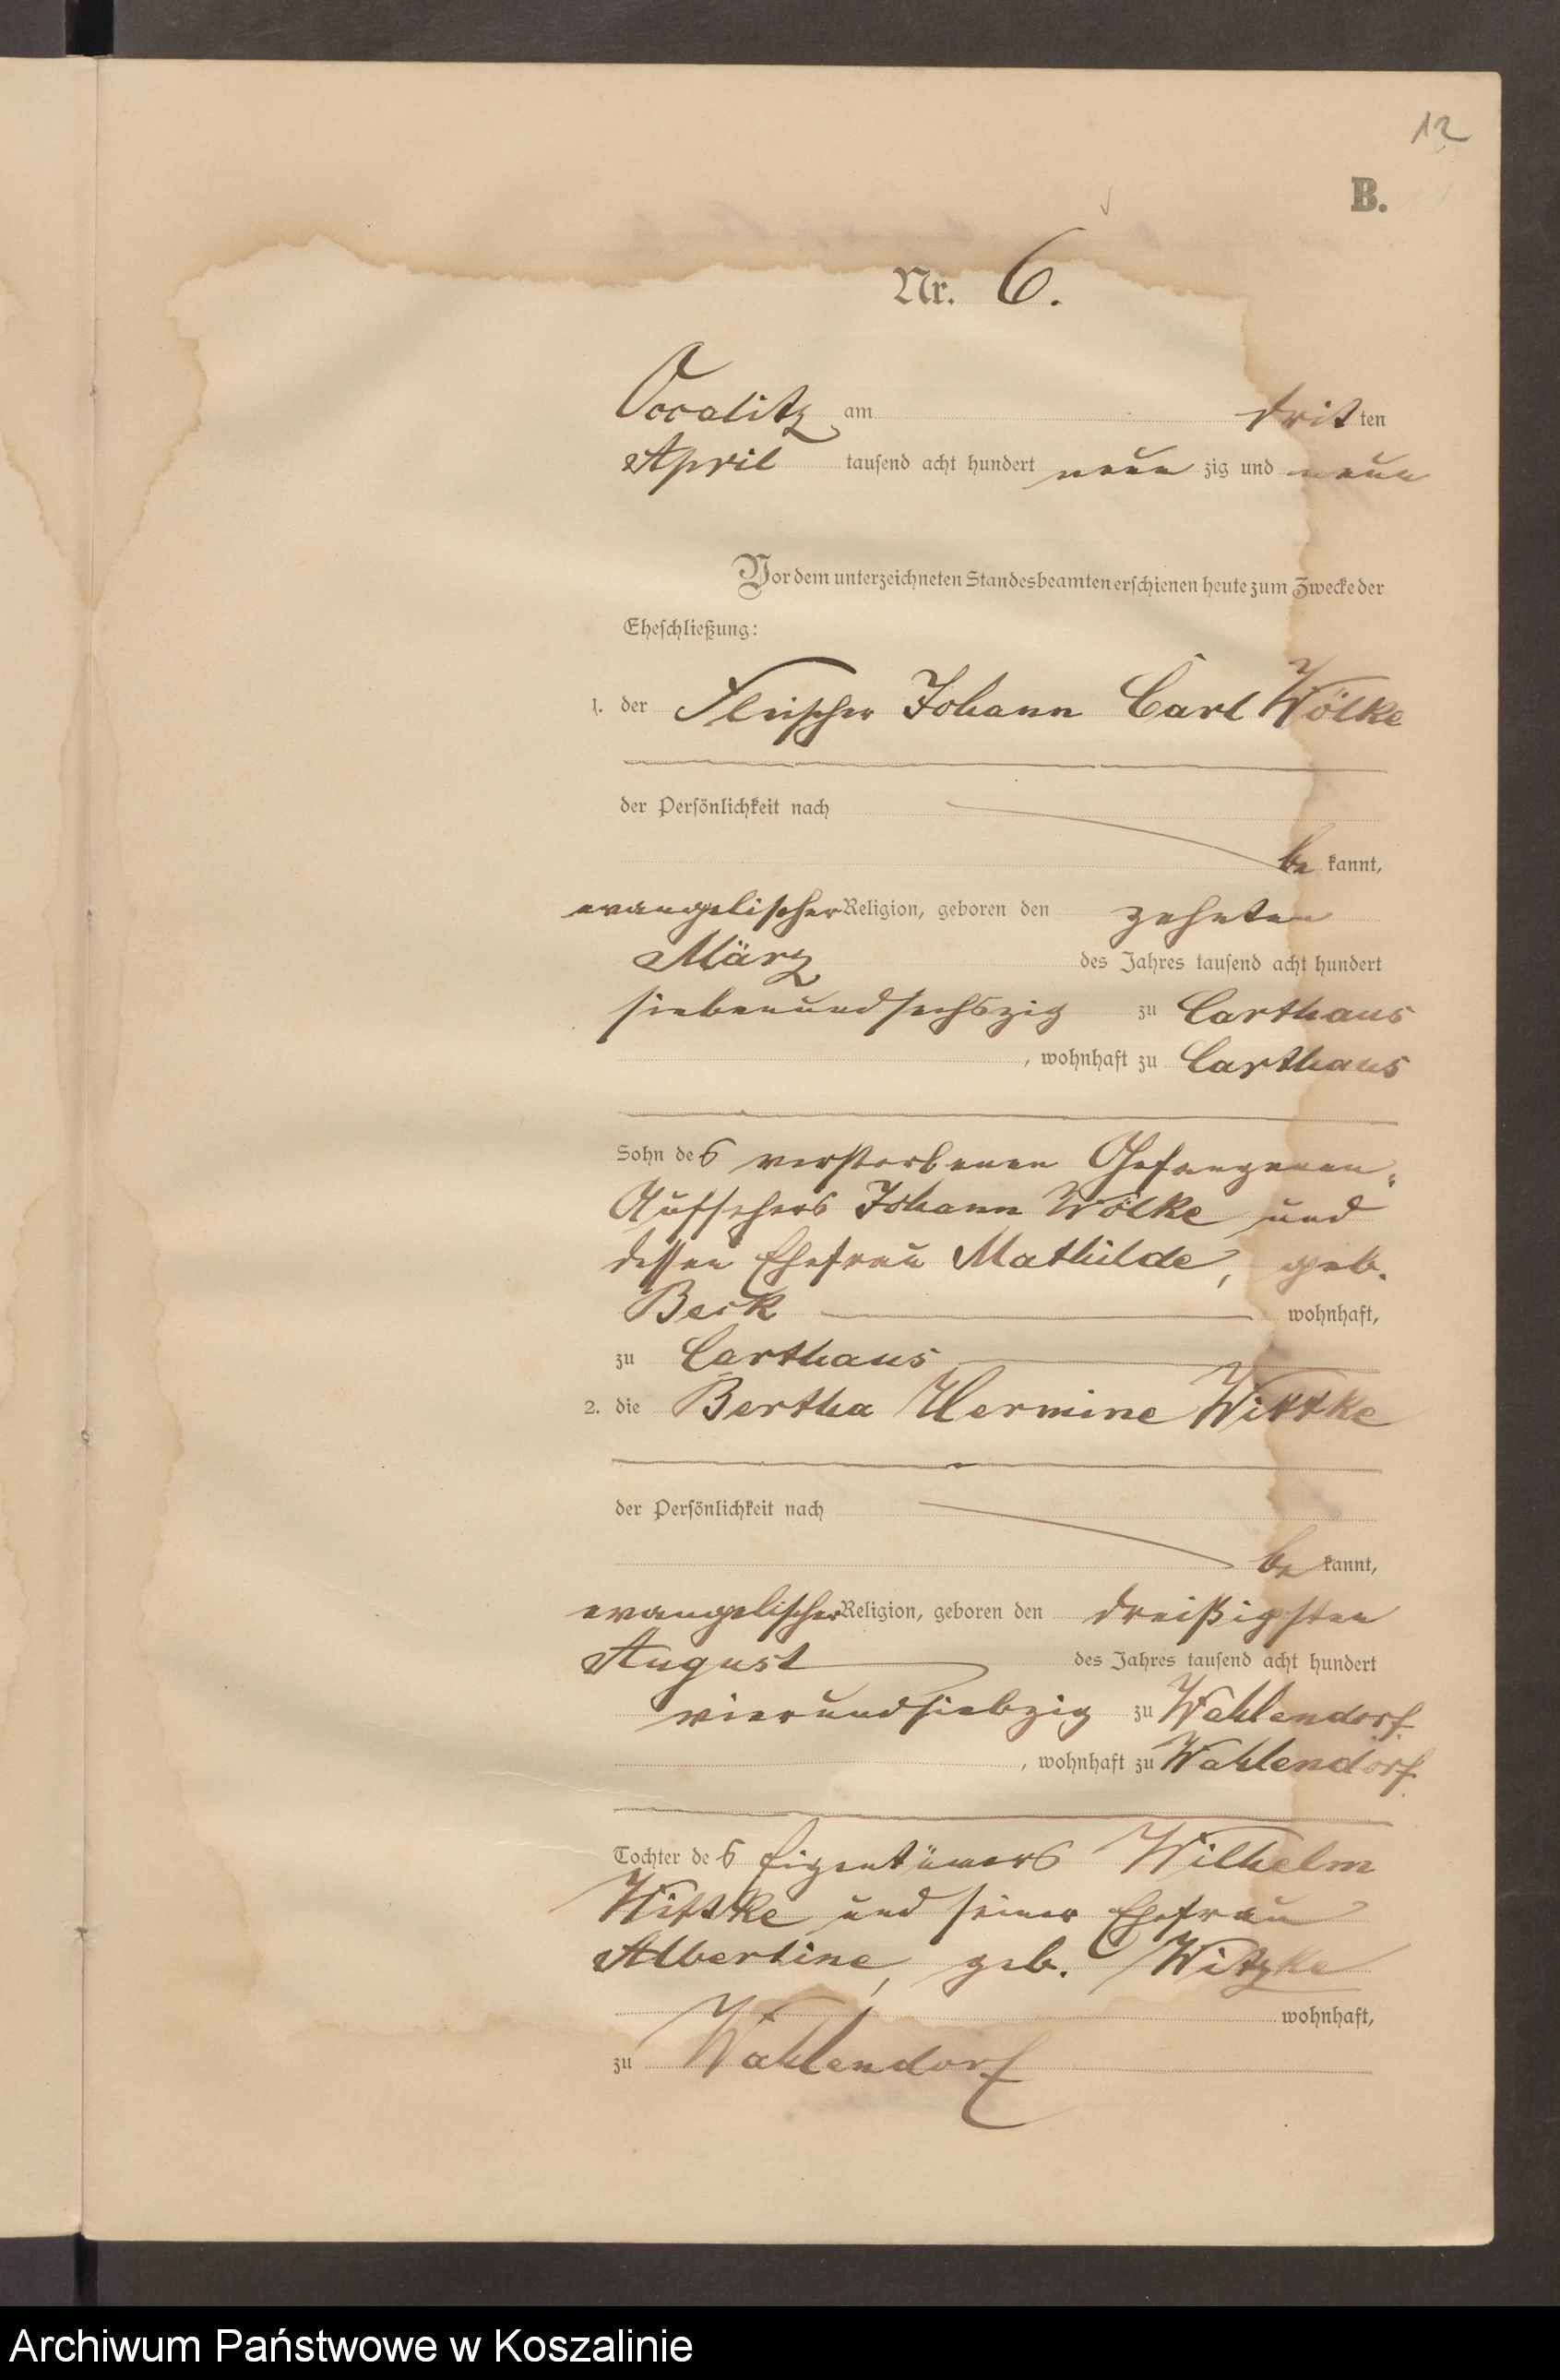 12
B.
Nr. 6.
Occalitz am dritten
April tausend acht hundert neun zig und neun
Vor dem unterzeichneten Standesbeamten erschienen heute zum Zwecke der
Eheschließung:
1. der Fleischer Johann Carl Wölke
der Persönlichkeit nach
be kannt,
evangelischer Religion, geboren den zehnten
März des Jahres tausend acht hundert
siebenundsechszig zu Carthaus
, wohnhaft zu Carthaus
Sohn des verstorbenen Gefangenen-
Aufsehers Johann Wölke und
dessen Ehefrau Mathilde, geb.
Beck wohnhaft,
zu Carthaus
2. die Bertha Hermine Wittke
der Persönlichkeit nach
be kannt,
evangelischer Religion, geboren den dreißigsten
August des Jahres tausend acht hundert
vierundsiebzig zu Wahlendorf
, wohnhaft zu Wahlendorf
Tochter des Eigentümers Wilhelm
Wittke und seiner Ehefrau
Albertine, geb. Witzke
wohnhaft,
zu Wahlendorf
Archiwum Państwowe w Koszalinie